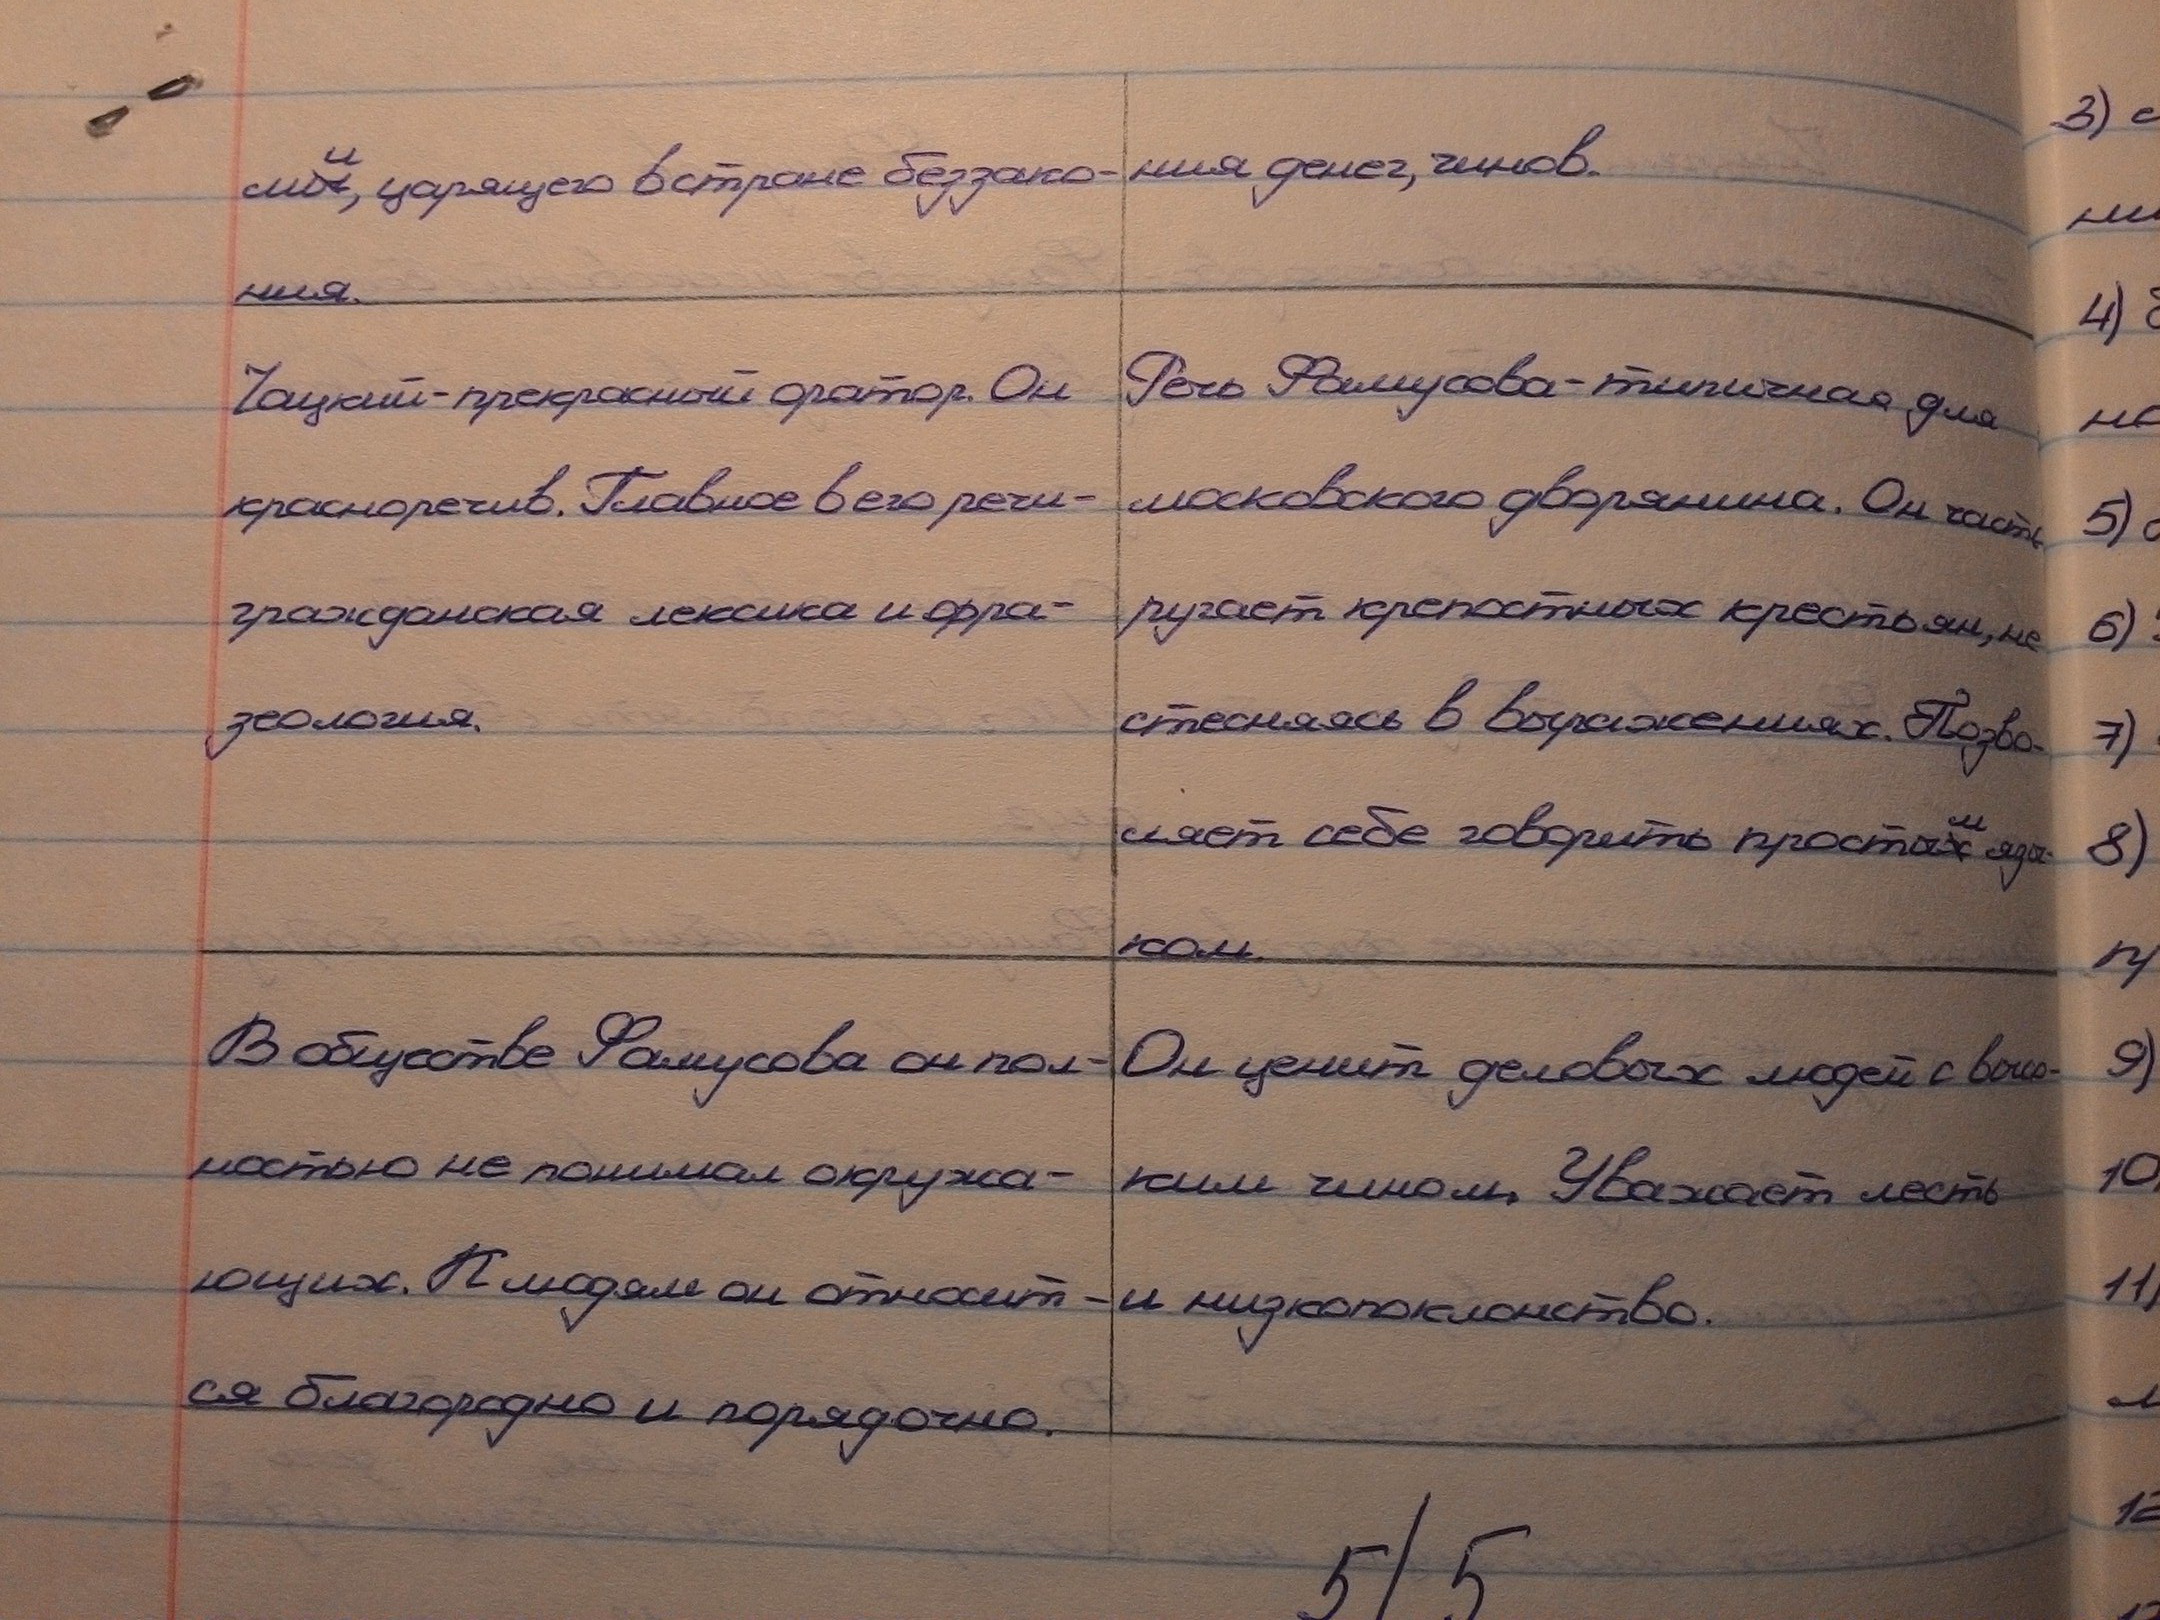 ми, царящего в стране беззако-
ния.
ния денег, чинов.
Чацкий-прекрасный оратор. Он
красноречив. Главное в его речи-
гражданская лексика и фра-
зеология.
Речь Фамусова-типичная для
московского дворянина. Он часть
ругает крепостных крестьян, не
стесняясь в выражениях. Позво-
ляет себе говорить простым язы-
ком.
В обществе Фамусова он пол-
ностью не понимал окружа-
ющих. К людям он относит-
ся благородно и порядочно.
Он ценит деловых людей с высо-
ким чином. Уважает лесть
и низкопоклонство.
5/5
3) с
ни
4) б
но
5)
6)
7)
8)
пу
9)
10)
11)
м
12